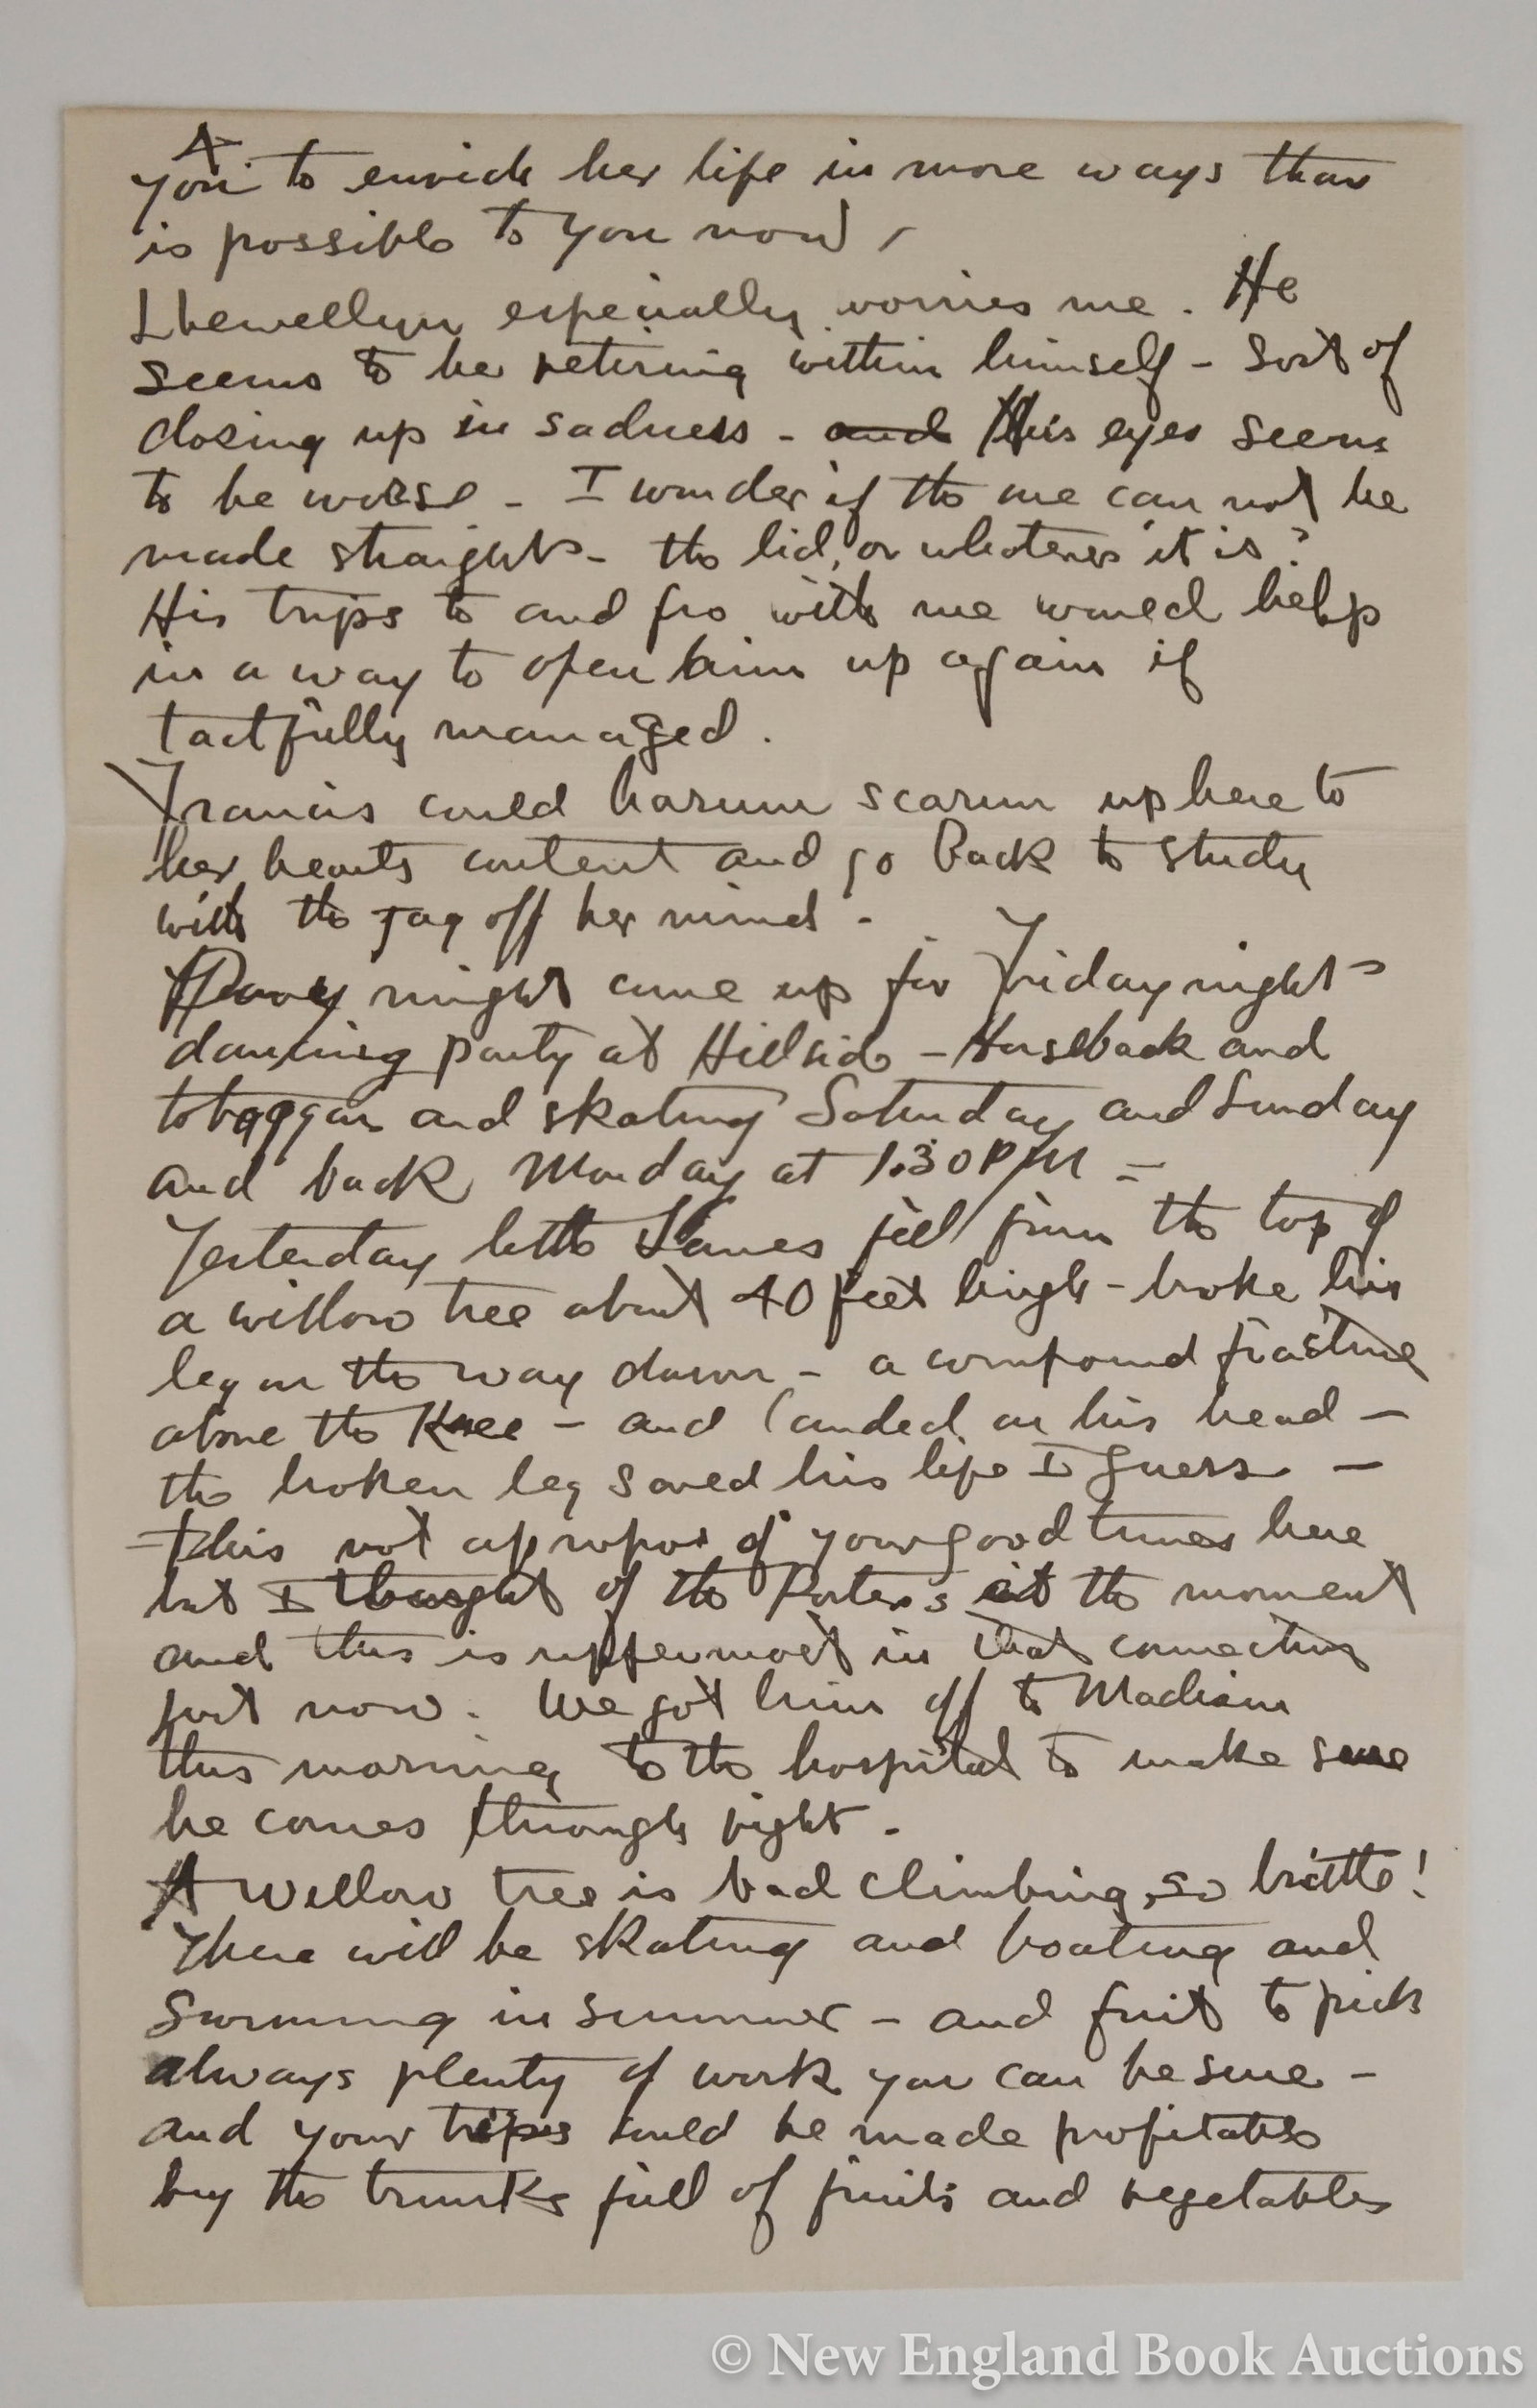 you to enrich her life in more ways than
is possible to you now,
Llewellyn especially worries me. He
seems to be retiring within himself - sort of
closing up in sadness - and His eyes seem
to be worse - I wonder if the one can not be
made straight - the lid, or whatever it is?
His trips to and fro with me would help
in a way to open him up again if
tactfully managed.
Francis could harum scarum up here to
her hearts content and go back to study
with the jag off her mind -
might come up for Friday night
dancing party at Hillside - Horseback and
toboggan and skating Saturday and Sunday
and back Monday at 1:30 PM -
Yesterday little James fell from the top of
a willow tree about 40 feet high - broke his
leg on the way down - a compound fracture
above the Knee - and landed on his head -
the broken leg saved his life I guess -
This not apropos of your good times here
but I thought of the Porters at the moment
and this is uppermost in that connection
just now. We got him off to Madison
this morning to the hospital to make sure
he comes through right -
A Willow tree is bad climbing, so brittle!
There will be skating and boating and
swimming in summer - and fruit to pick
always plenty of work you can be sure -
and your trips could be made profitable
by the trunks full of fruits and vegetables
© New England Book Auctions